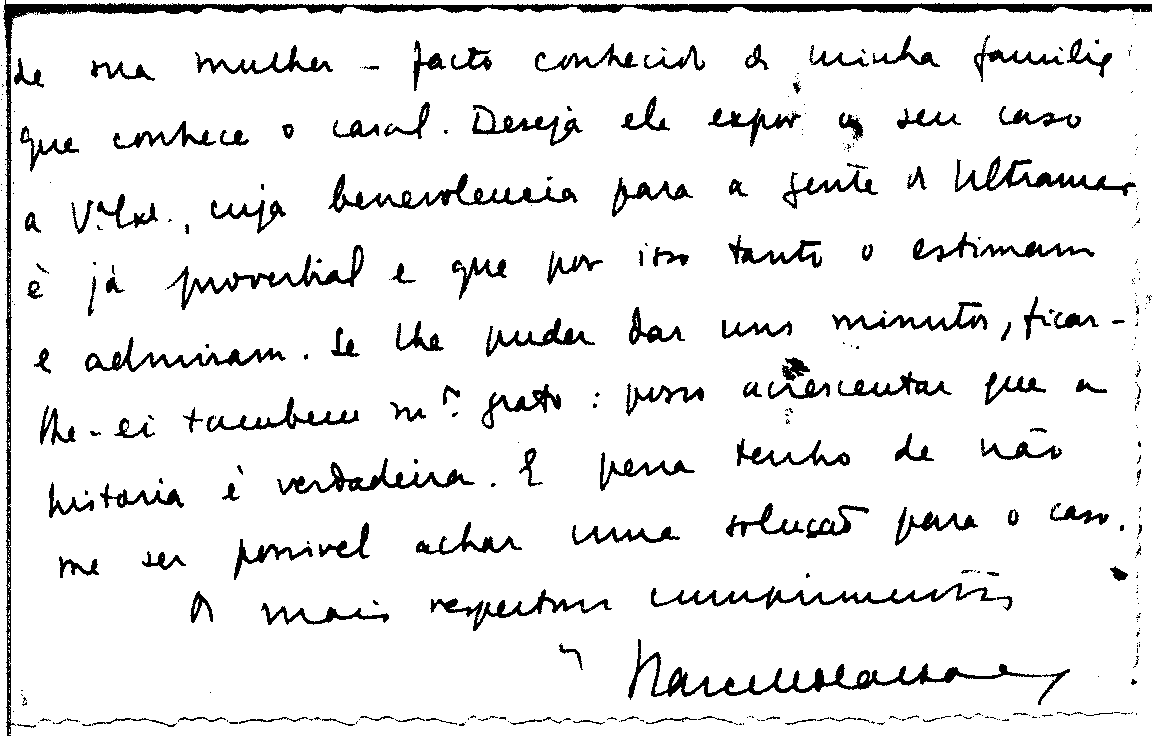 de sua mulher – facto conhecido da minha familia
que conhece o casal. Deseja ele expor o seu caso
a V.ª Ex.ª, cuja benevolencia para a gente do Ultramar
é já proverbial e que por isso tanto o estimam
e admiram. Se lhe puder dar uns minutos, ficar-
lhe-ei tambem m.to grato: posso acrescentar que a
historia é verdadeira. E pena tenho de não
me ser possivel achar uma solução para o caso.
Os mais respeitosos cumprimentos